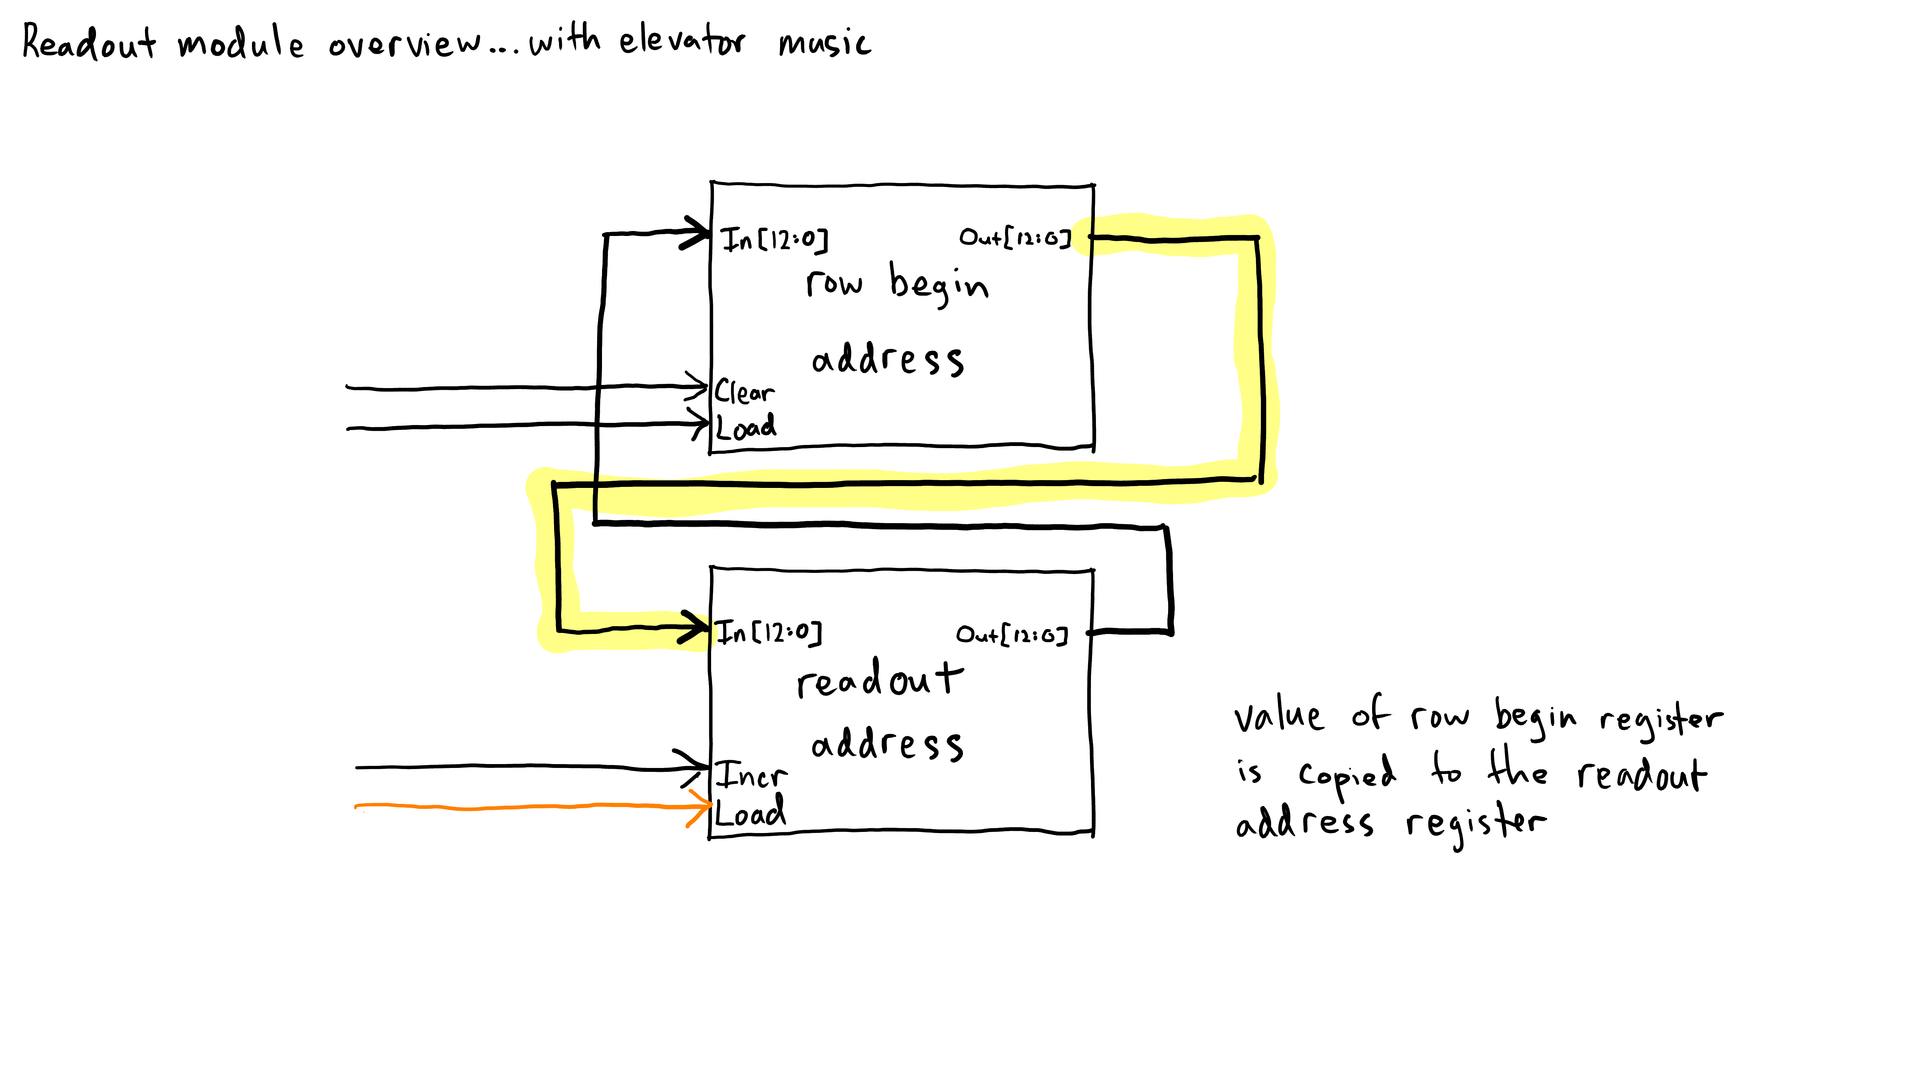 Readout module overview...with elevator music
In[12:0]
Out[12:0]
row begin
address
Clear
Load
In[12:0]
Out[12:0]
readout
address
Incr
Load
value of row begin register
is copied to the readout
address register